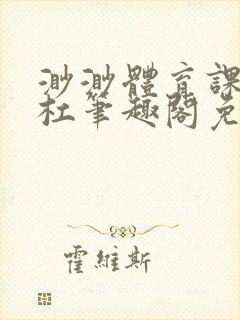 渺渺體育課
杜筆趣閣免
霍維斯